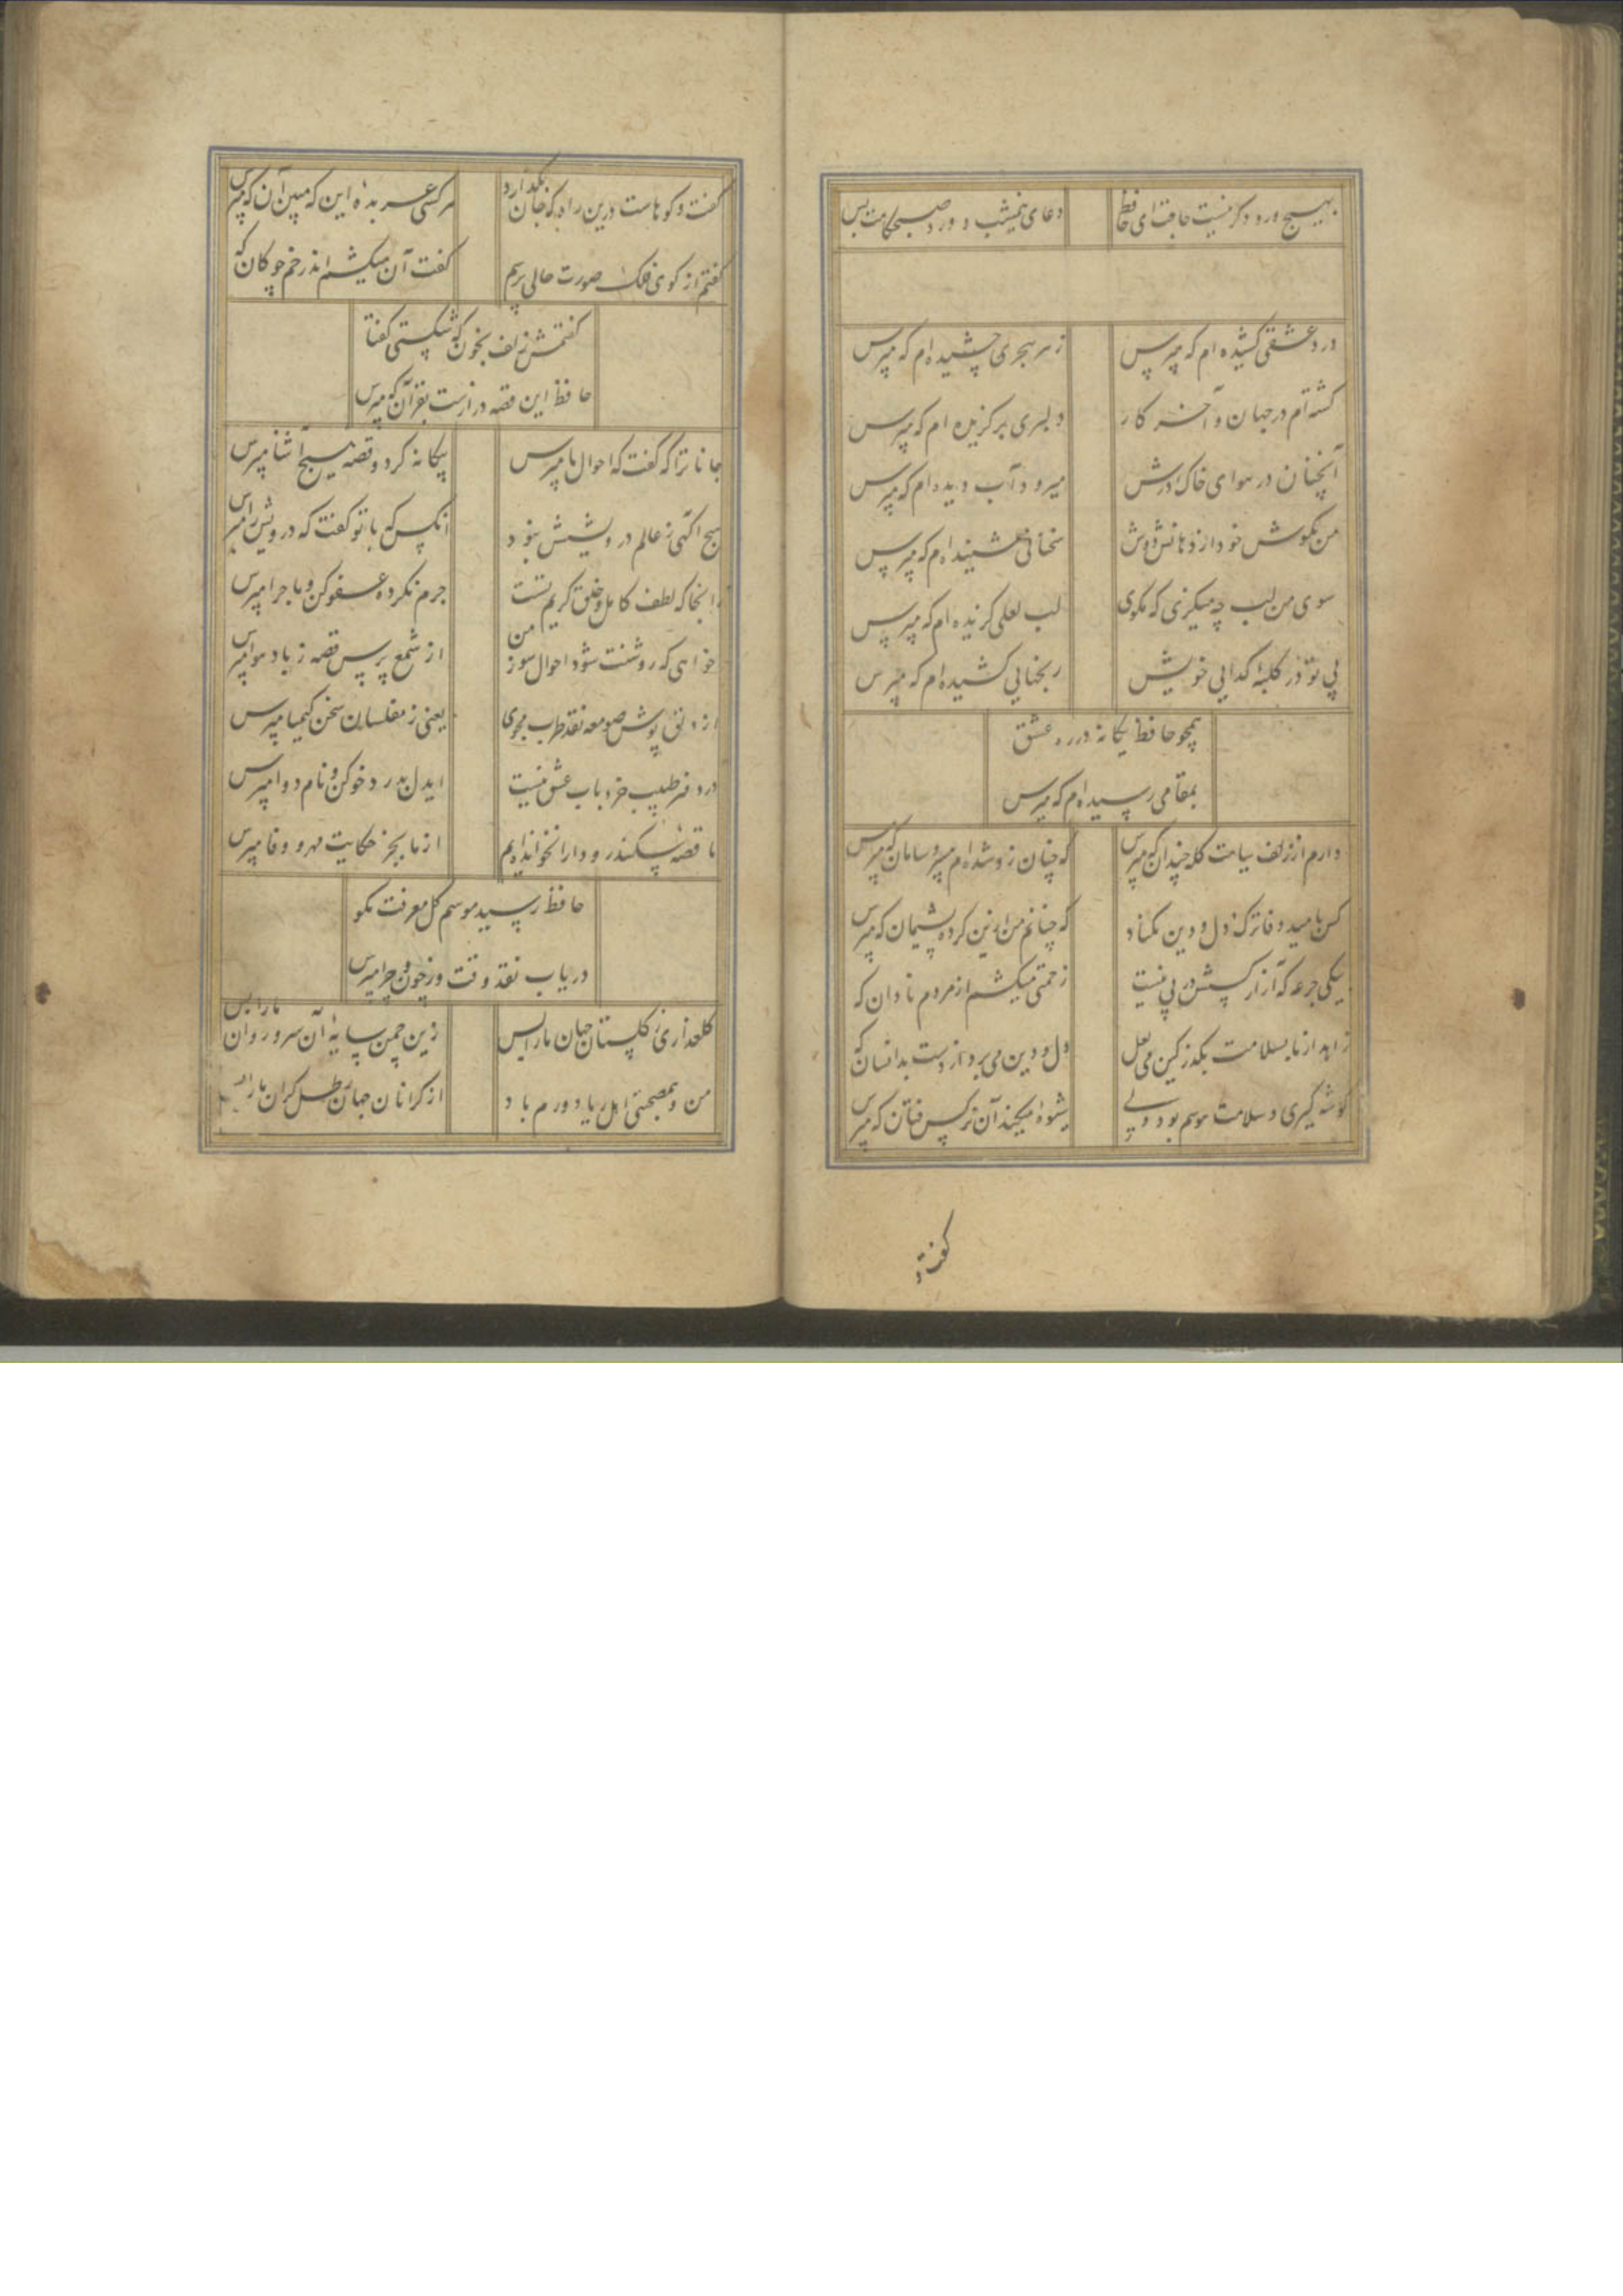 بهیچ ورد دکر نیست حاجت ای حافظ
دعای نیمشب و ورد صبحکاهت بس
درد عشقی کشیده ام که مپرس
زهر هجری چشیده ام که مپرس
کشته ام در جهان و آخر کار
دلبری برکزیده ام که مپرس
آنچنان در هوای خاک درش
میرود آب دیده ام که مپرس
من بکوش خود از دهانش دوش
سخنانی شنیده ام که مپرس
سوی من لب چه میکزی که مکوی
لب لعلی کزیده ام که مپرس
بی تو در کلبهٔ کدایی خویش
رنجهایی کشیده ام که مپرس
همچو حافظ یکانه در ره عشق
بمقامی رسیده ام که مپرس
دارم از زلف سیاهت کله چندان که مپرس
که چنان زو شده ام بی سر و سامان که مپرس
کس بامید وفا ترک دل و دین مکناد
که چنانم من ازین کرده پشیمان که مپرس
بیکی جرعه که آزار کسش در پی نیست
زحمتی میکشم از مردم نادان که
زاهد از ما بسلامت بکذر کین می لعل
دل و دین می برد از دست بدانسان که
کوشه کیری و سلامت هوسم بود ولی
شیوه میکند آن نرکس فتان که مپرس
کفت و
گفت و کوهاست درین راه که جان بکدازد
هر کسی عربدهٔ این که مبین آن که مپرس
کفتم از کوی فلک صورت حالی پرسم
کفت آن میکشم اندر خم چوکان که
کفتمش زلف بخون که شکستی کفتا
حافظ این قصه درازست بقرآن که مپرس
جانا ترا که کفت که احوال ما مپرس
بیکانه کرد و قصه هیچ آشنا مپرس
هیچ آکهی ز عالم درویشیش نبود
آنکس که با تو کفت که درویش را مپرس
زانجا که لطف کامل و خلق کریم تست
جرم نکرده عفو کن و ماجرا مپرس
خواهی که روشنت شود احوال سوز من
از شمع پرس قصه ز باد هوا مپرس
از دلق پوش صومعه نقد طرب مجوی
یعنی ز مفلسان سخن کیمیا مپرس
در دفتر طبیب خرد باب عشق نیست
ایدل بدرد خو کن و نام دوا مپرس
ما قصهٔ سکندر و دارا نخوانده ایم
از ما بجز حکایت مهر و وفا مپرس
حافظ رسید موسم کل معرفت مکو
دریاب نقد وقت وز چون و چرا مپرس
کلعذاری ز کلستان جهان ما را بس
زین چمن سایهٔ آن سرو روان ما را بس
من و همصحبتی اهل ریا دورم باد
از کرانان جهان رطل کران ما را